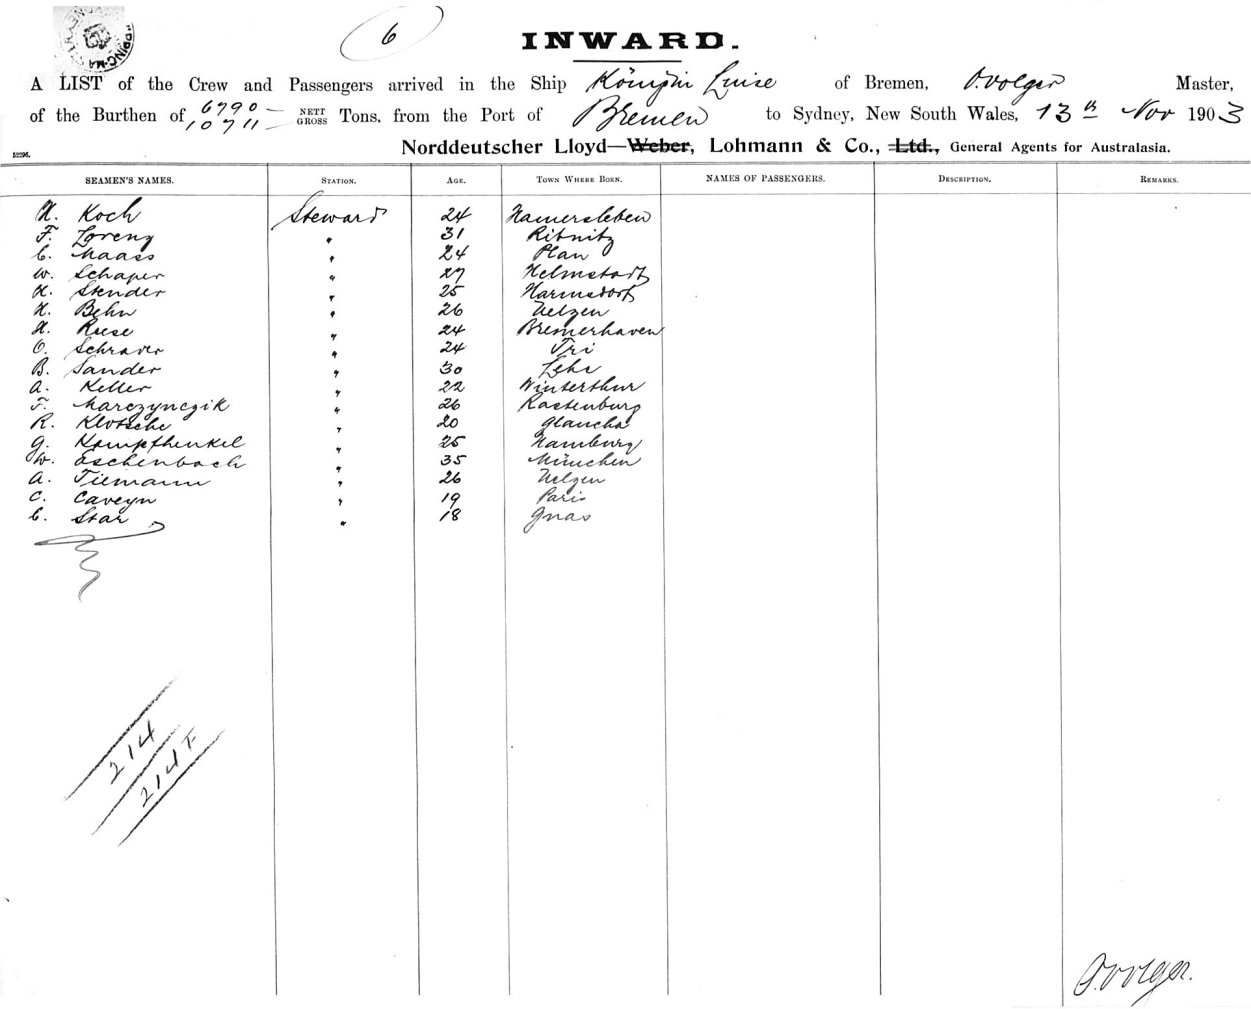 6
INWARD.
A LIST of the Crew and Passengers arrived in the Ship Königin Luise of Bremen, O. Volger Master,
of the Burthen of 6790 / 10711 NETT GROSS Tons, from the Port of Bremen to Sydney, New South Wales, 13th Nov 1903
52296. Norddeutscher Lloyd—Weber, Lohmann & Co., Ltd., General Agents for Australasia.
SEAMEN'S NAMES. STATION. AGE. TOWN WHERE BORN. NAMES OF PASSENGERS. DESCRIPTION. REMARKS.
H. Koch Steward 24 Hamersleben
F. Lorenz " 31 Ribnitz
C. Maass " 24 Plau
W. Schaper " 27 Helmstadt
H. Stender " 25 Harmsdorf
H. Behn " 26 Uelzen
H. Reese " 24 Bremerhaven
O. Schrader " 24
B. Sander " 30 Lehe
A. Keller " 22 Winterthur
F. Marczynczik " 26 Rastenburg
R. Klotsche " 20 Glaucha
G. Kampfhenkel " 25 Hamburg
W. Eschenbach " 35 München
A. Tiemann " 26 Uelzen
C. Caveyn " 19 Paris
C. Star " 18 Gnas
214
214 F
O. Volger.